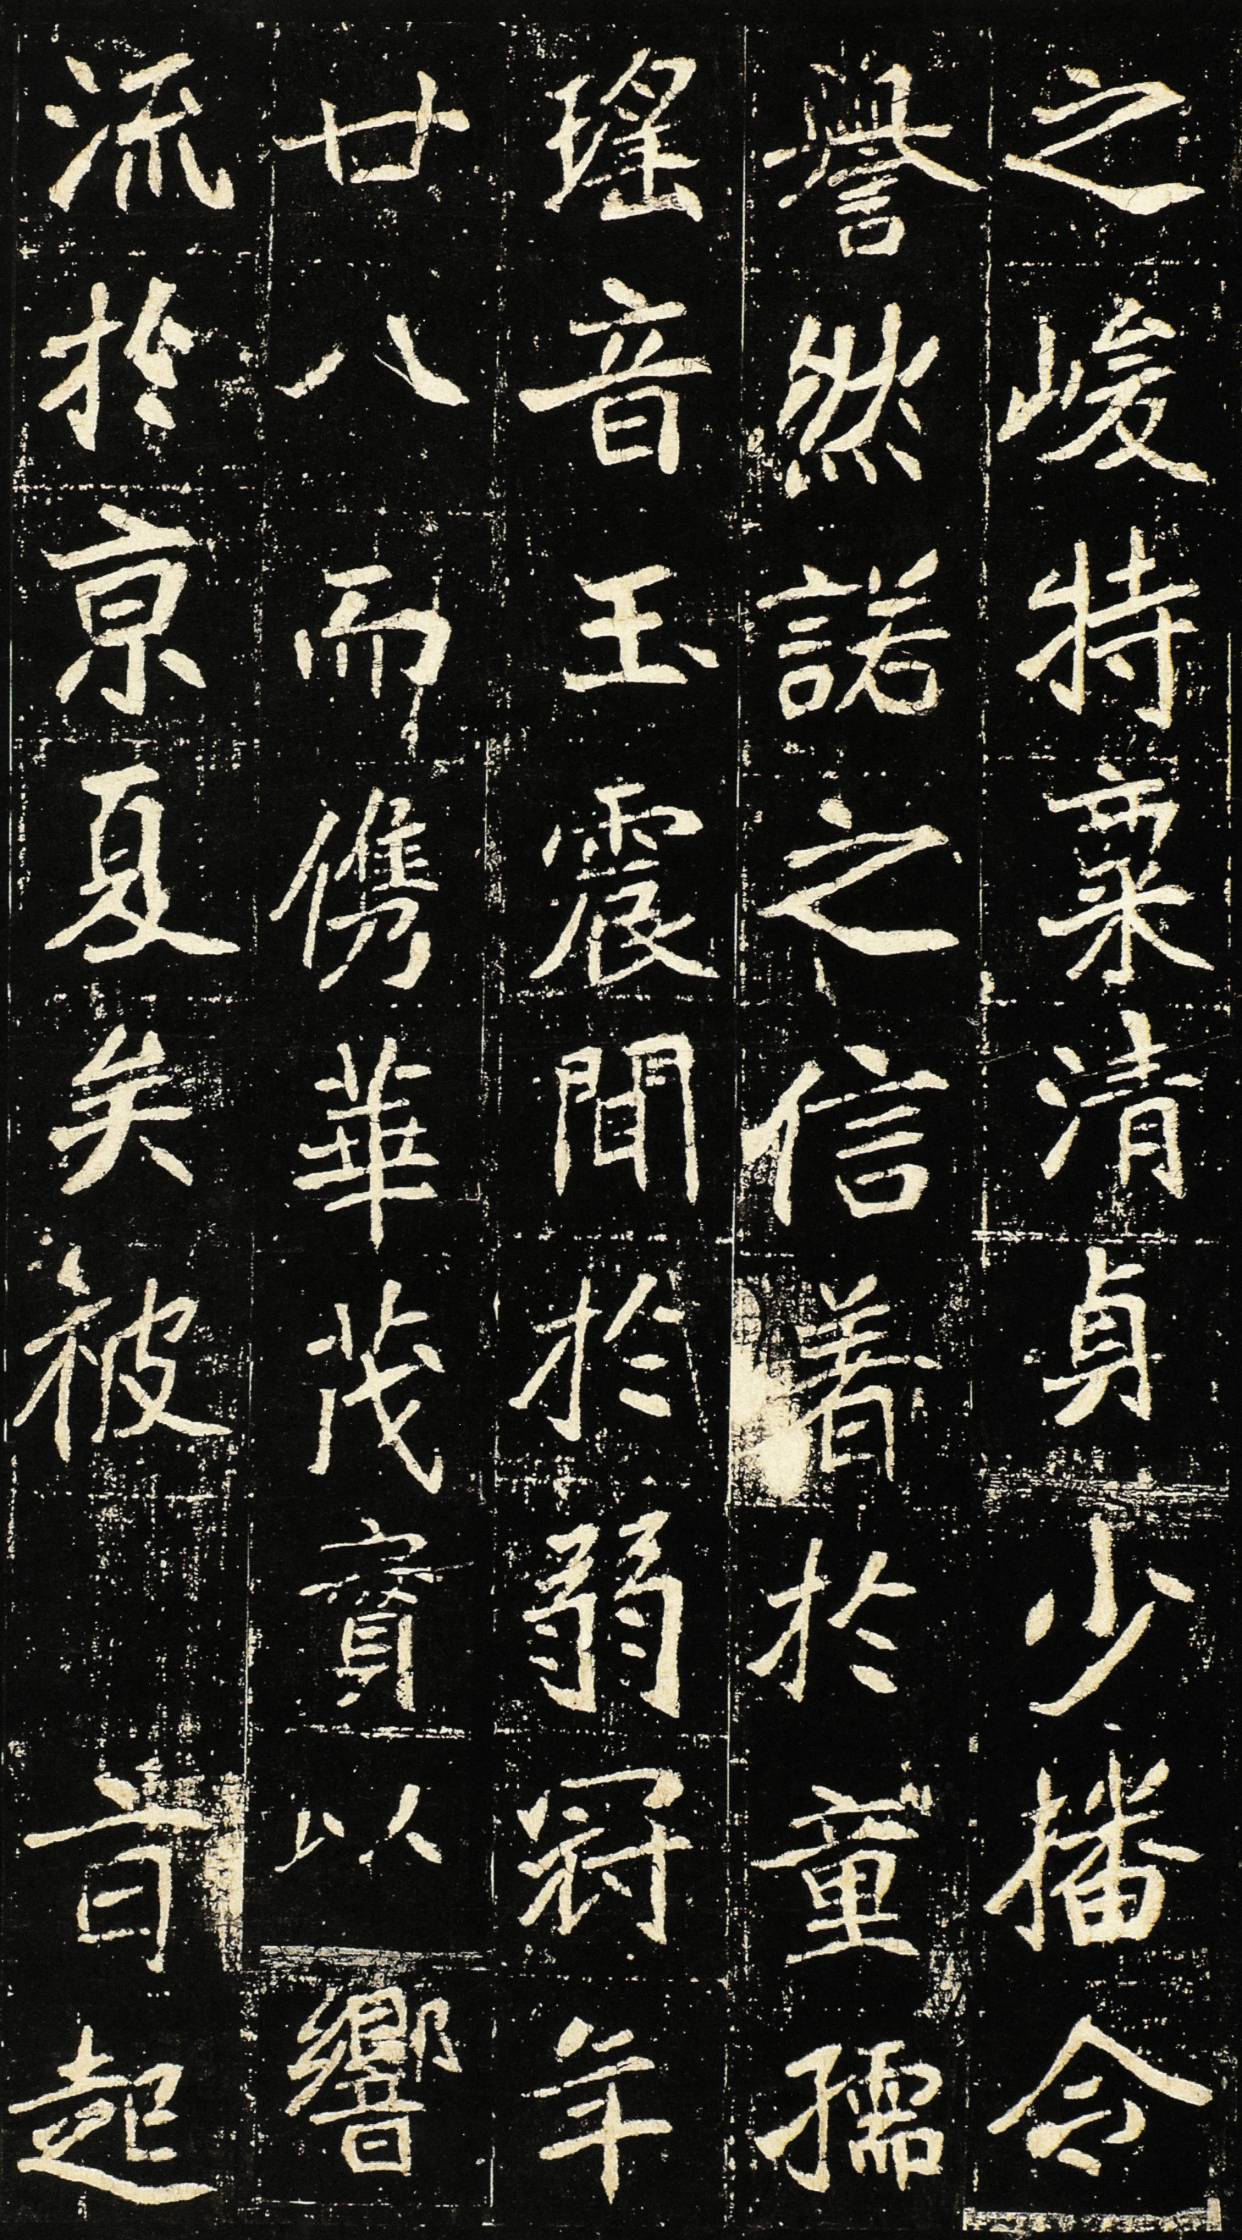 之峻特稟清貞少播令
譽然諾之信着於童孺
瑤音玉震聞於弱冠年
廿八而儁華茂實以響
流於京夏矣被旨起